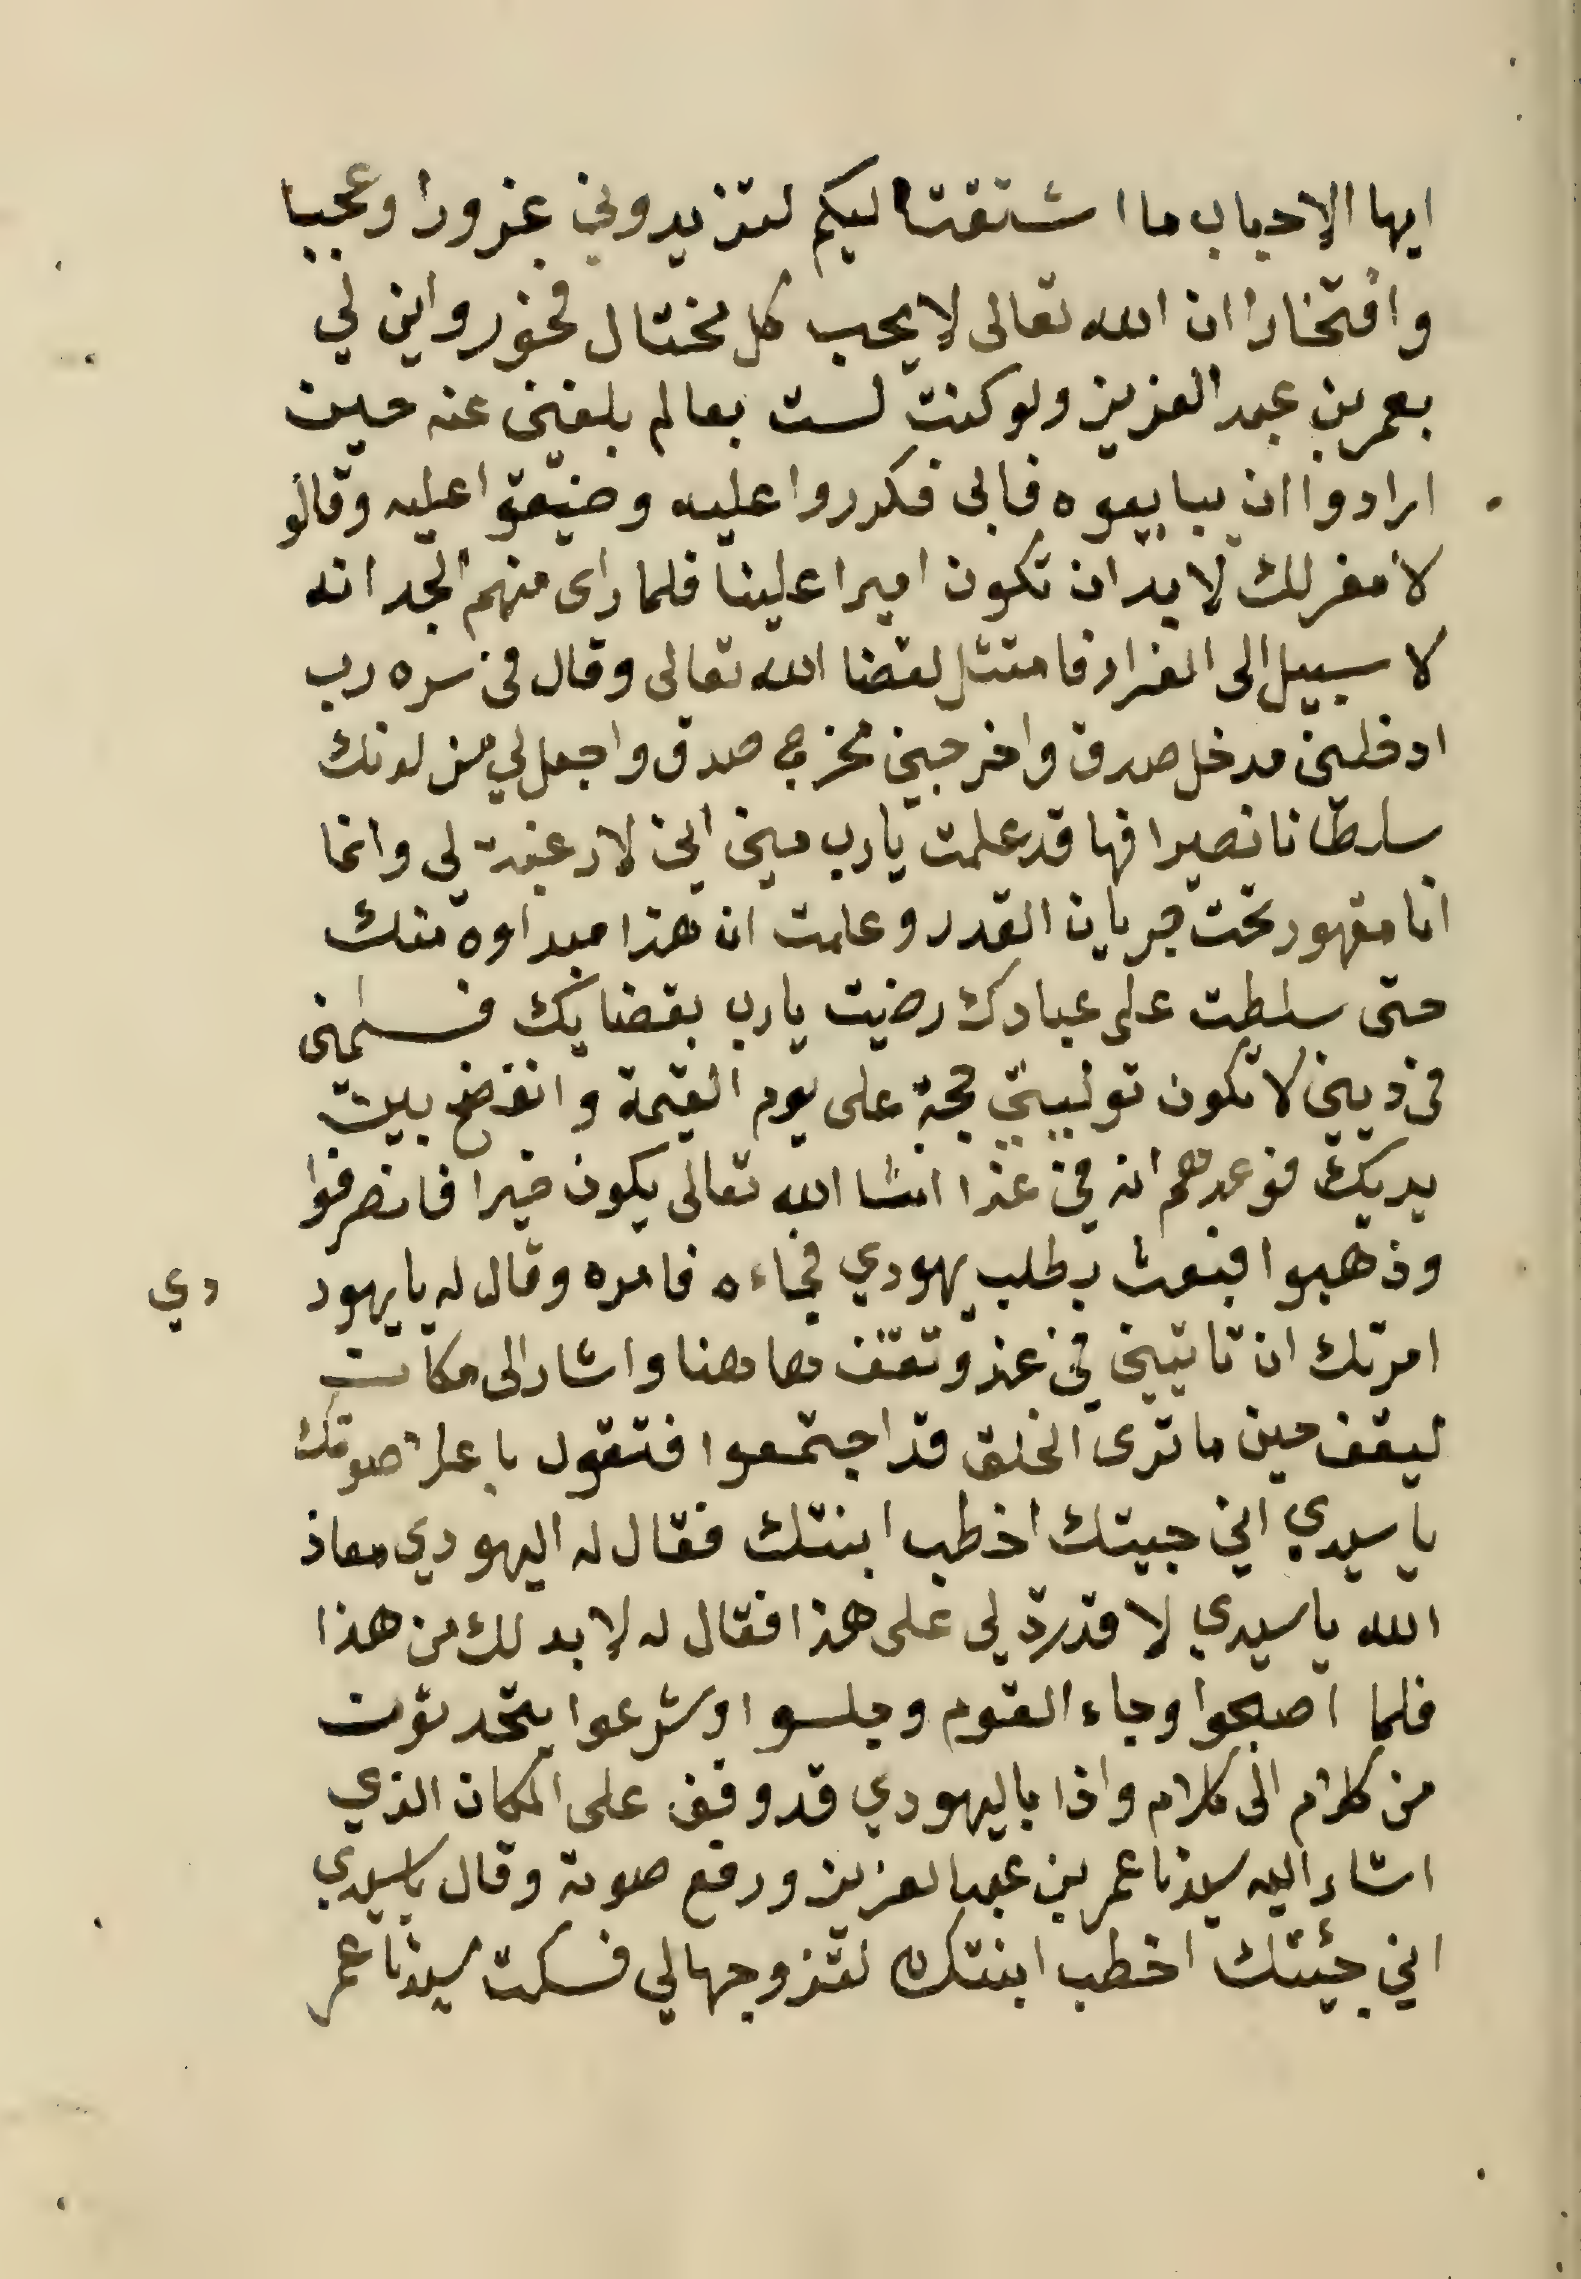 ايها الاحباب ما اشتقت اليكم لتزيدوني غرورا وعجبا
وافتخارا ان الله تعالى لا يحب كل مختال فخور واين لي
بعمر بن عبد العزيز ولو كنت لست بعالم بلغني عنه حين
ارادوا ان يبايعوه فابى فكرروا عليه وضيقوا عليه وقالو
لا مفر لك لا بد ان تكون اميرا علينا فلما راى منهم الجد انه
لا سبيل الى الفرار فامتثل لقضا الله تعالى وقال في سره رب
ادخلني مدخل صدق واخرجني مخرج صدق واجعل لي من لدنك
سلطانا نصيرا فها قد علمت يا رب مني اني لا رغبة لي وانما
انا مقهور تحت جريان القدر وعلمت ان هذا مبداوه منك
حتى سلطت على عبادك رضيت يا رب بقضايك فسلمني
في ديني لا تكون توليتي حجة على يوم القيمة وانفضح بين
يديك فوعدهم انه في غدا انشا الله تعالى يكون خيرا فانصرفوا
وذهبوا فبعث بطلب يهودي فجاءه فامره وقال له يا يهود دي
امرتك ان تاتيني في غد وتقف هاهنا واشار الى مكان
ليقف حين ما ترى الخلق قد اجتمعوا فتقول باعلا صوتك
يا سيدي اني جيتك اخطب ابنتك فقال له اليهودي معاذ
الله يا سيدي لا قدرة لي على هذا فقال له لا بد لك من هذا
فلما اصبحوا وجاء القوم وجلسوا وشرعوا يتحدثون
من كلام الى كلام واذا باليهودي قد وقف على المكان الذي
اشار اليه سيدنا عمر بن عبد العزيز ورفع صوته وقال يا سيدي
اني جئتك اخطب ابنتك لتزوجها لي فسكت سيدنا عمر